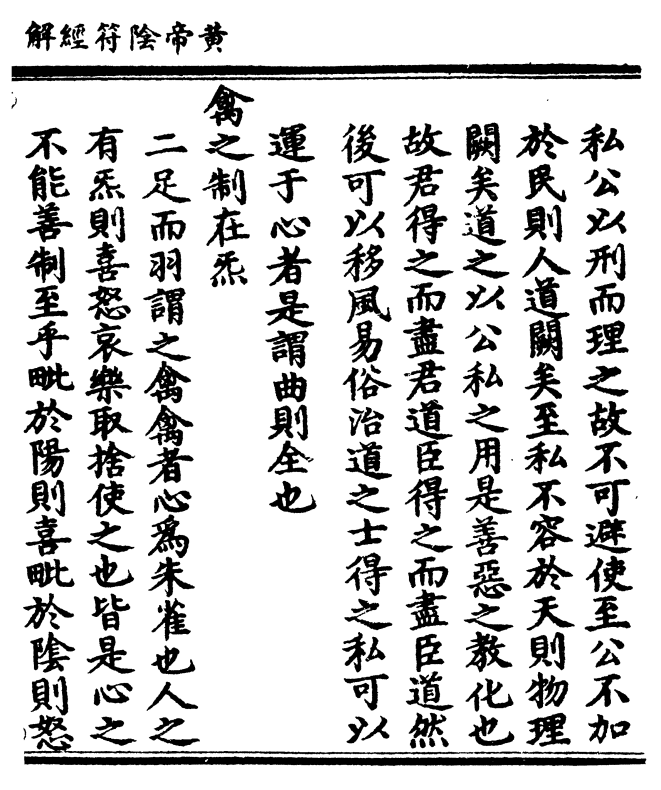 黃帝陰符經解
私公以刑而理之故不可避使至公不加
於民則人道闕矣至私不容於天則物理
闕矣道之以公私之用是善惡之教化也
故君得之而盡君道臣得之而盡臣道然
後可以移風易俗治道之士得之私可以
運于心者是謂曲則全也
禽之制在炁
二足而羽謂之禽禽者心為朱雀也人之
有炁則喜怒哀樂取捨使之也皆是心之
不能善制至乎毗於陽則喜毗於陰則怒